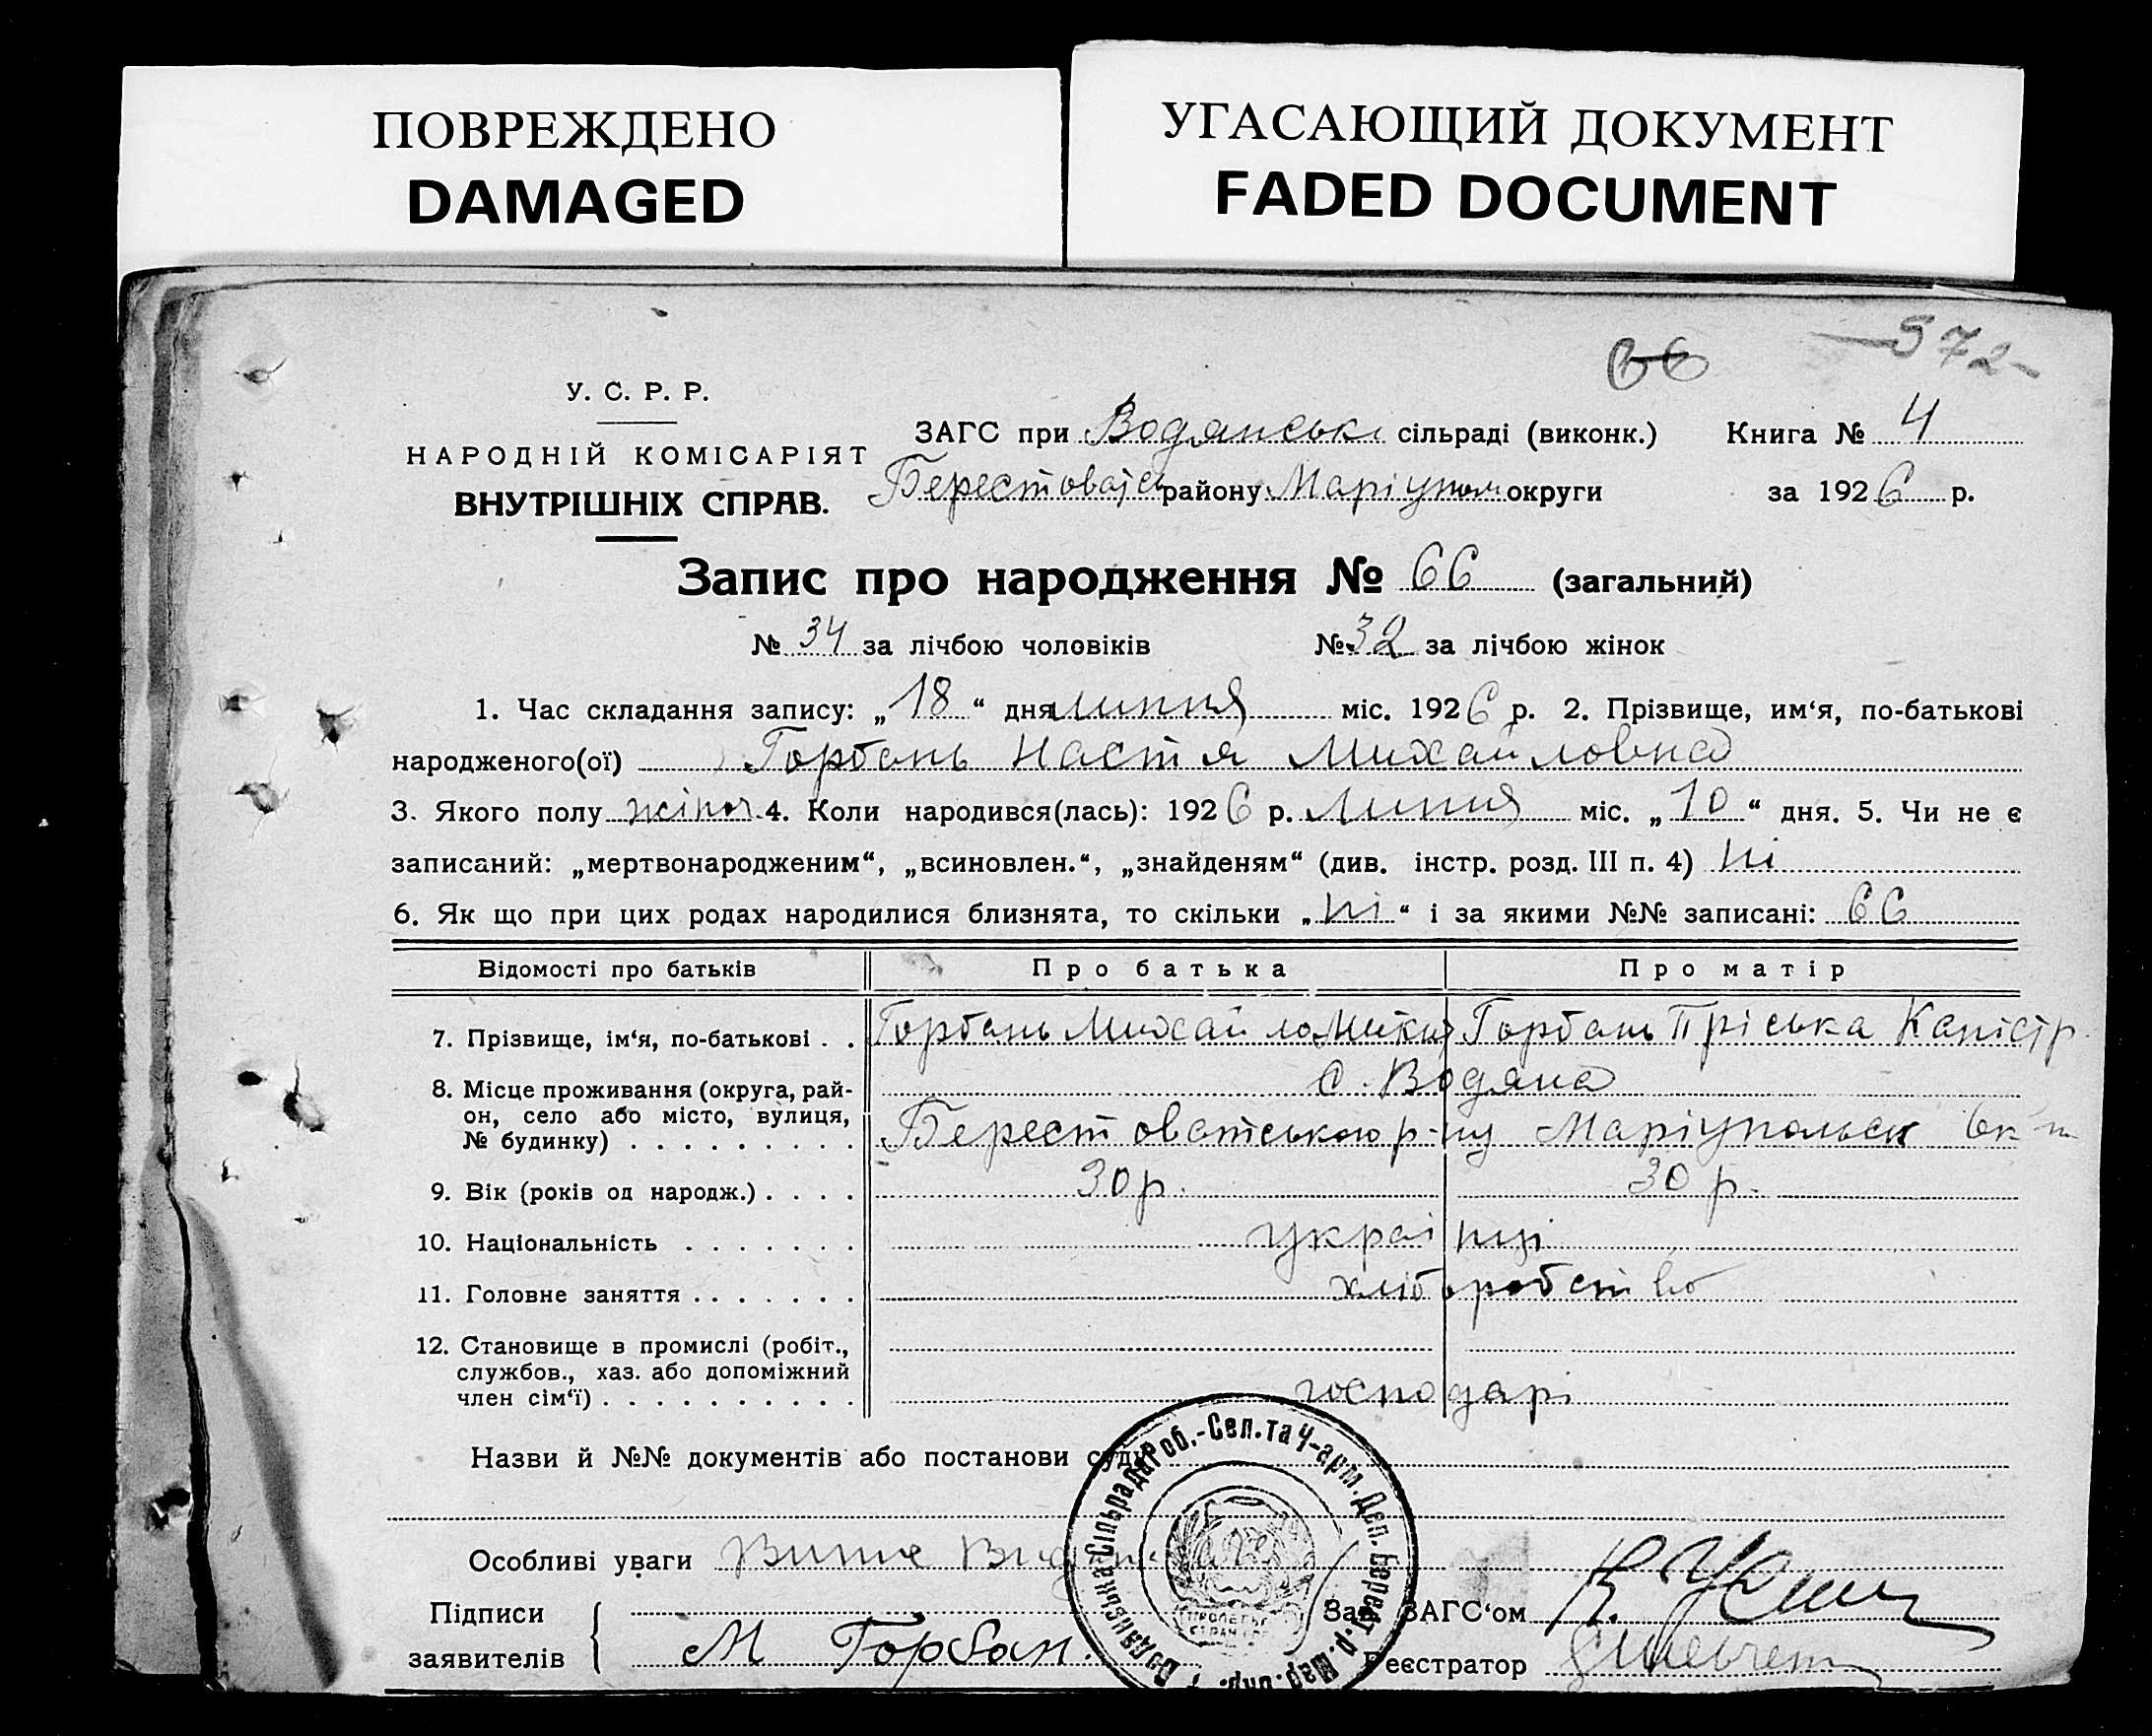 ПОВРЕЖДЕНО
DAMAGED
УГАСАЮЩИЙ ДОКУМЕНТ
FADED DOCUMENT
66 572
У. С. Р. Р.
НАРОДНІЙ КОМІСАРІЯТ
ВНУТРІШНІХ СПРАВ.
ЗАГС при Водянські сільраді (виконк.) Книга № 4
Берестоватсь району Маріупол округи за 1926 р.
Запис про народження № 66 (загальний)
№ 34 за лічбою чоловіків № 32 за лічбою жінок
1. Час складання запису: „18“ дня липня міс. 1926 р. 2. Прізвище, им‘я, по-батькові
народженого(ої) Горбань Настя Михайловна
3. Якого полу жіноч. 4. Коли народився(лась): 1926 р. Липня міс. „10“ дня. 5. Чи не є
записаний: „мертвонародженим“, „всиновлен.“, „знайденям“ (див. інстр. розд. III п. 4) ні
6. Як що при цих родах народилися близнята, то скільки „ні“ і за якими №№ записані: 66
Відомості про батьків Про батька Про матір
7. Прізвище, ім‘я, по-батькові . . Горбань Михайло Микит Горбань Пріська Капістр.
8. Місце проживання (округа, рай-
он, село або місто, вулиця,
№ будинку) . . . . . . . . .
с. Водяна
Берестоватського р-ну Маріупольск
9. Вік (років од народж.) . . . . 30 р. 30 р.
10. Національність . . . . . . . украінці
11. Головне заняття . . . . . . . хліборобство
12. Становище в промислі (робіт.,
службов., хаз. або допоміжний
член сім‘ї) . . . . . . . . . . господарі
Назви й №№ документів або постанови суду
Особливі уваги
Підписи
заявителів М Горбан.
Зав. ЗАГС‘ом
Реєстратор
Водянська Сільрада Роб.-Сел. та Ч-арм. Деп. Берест. р. Мар. окр.